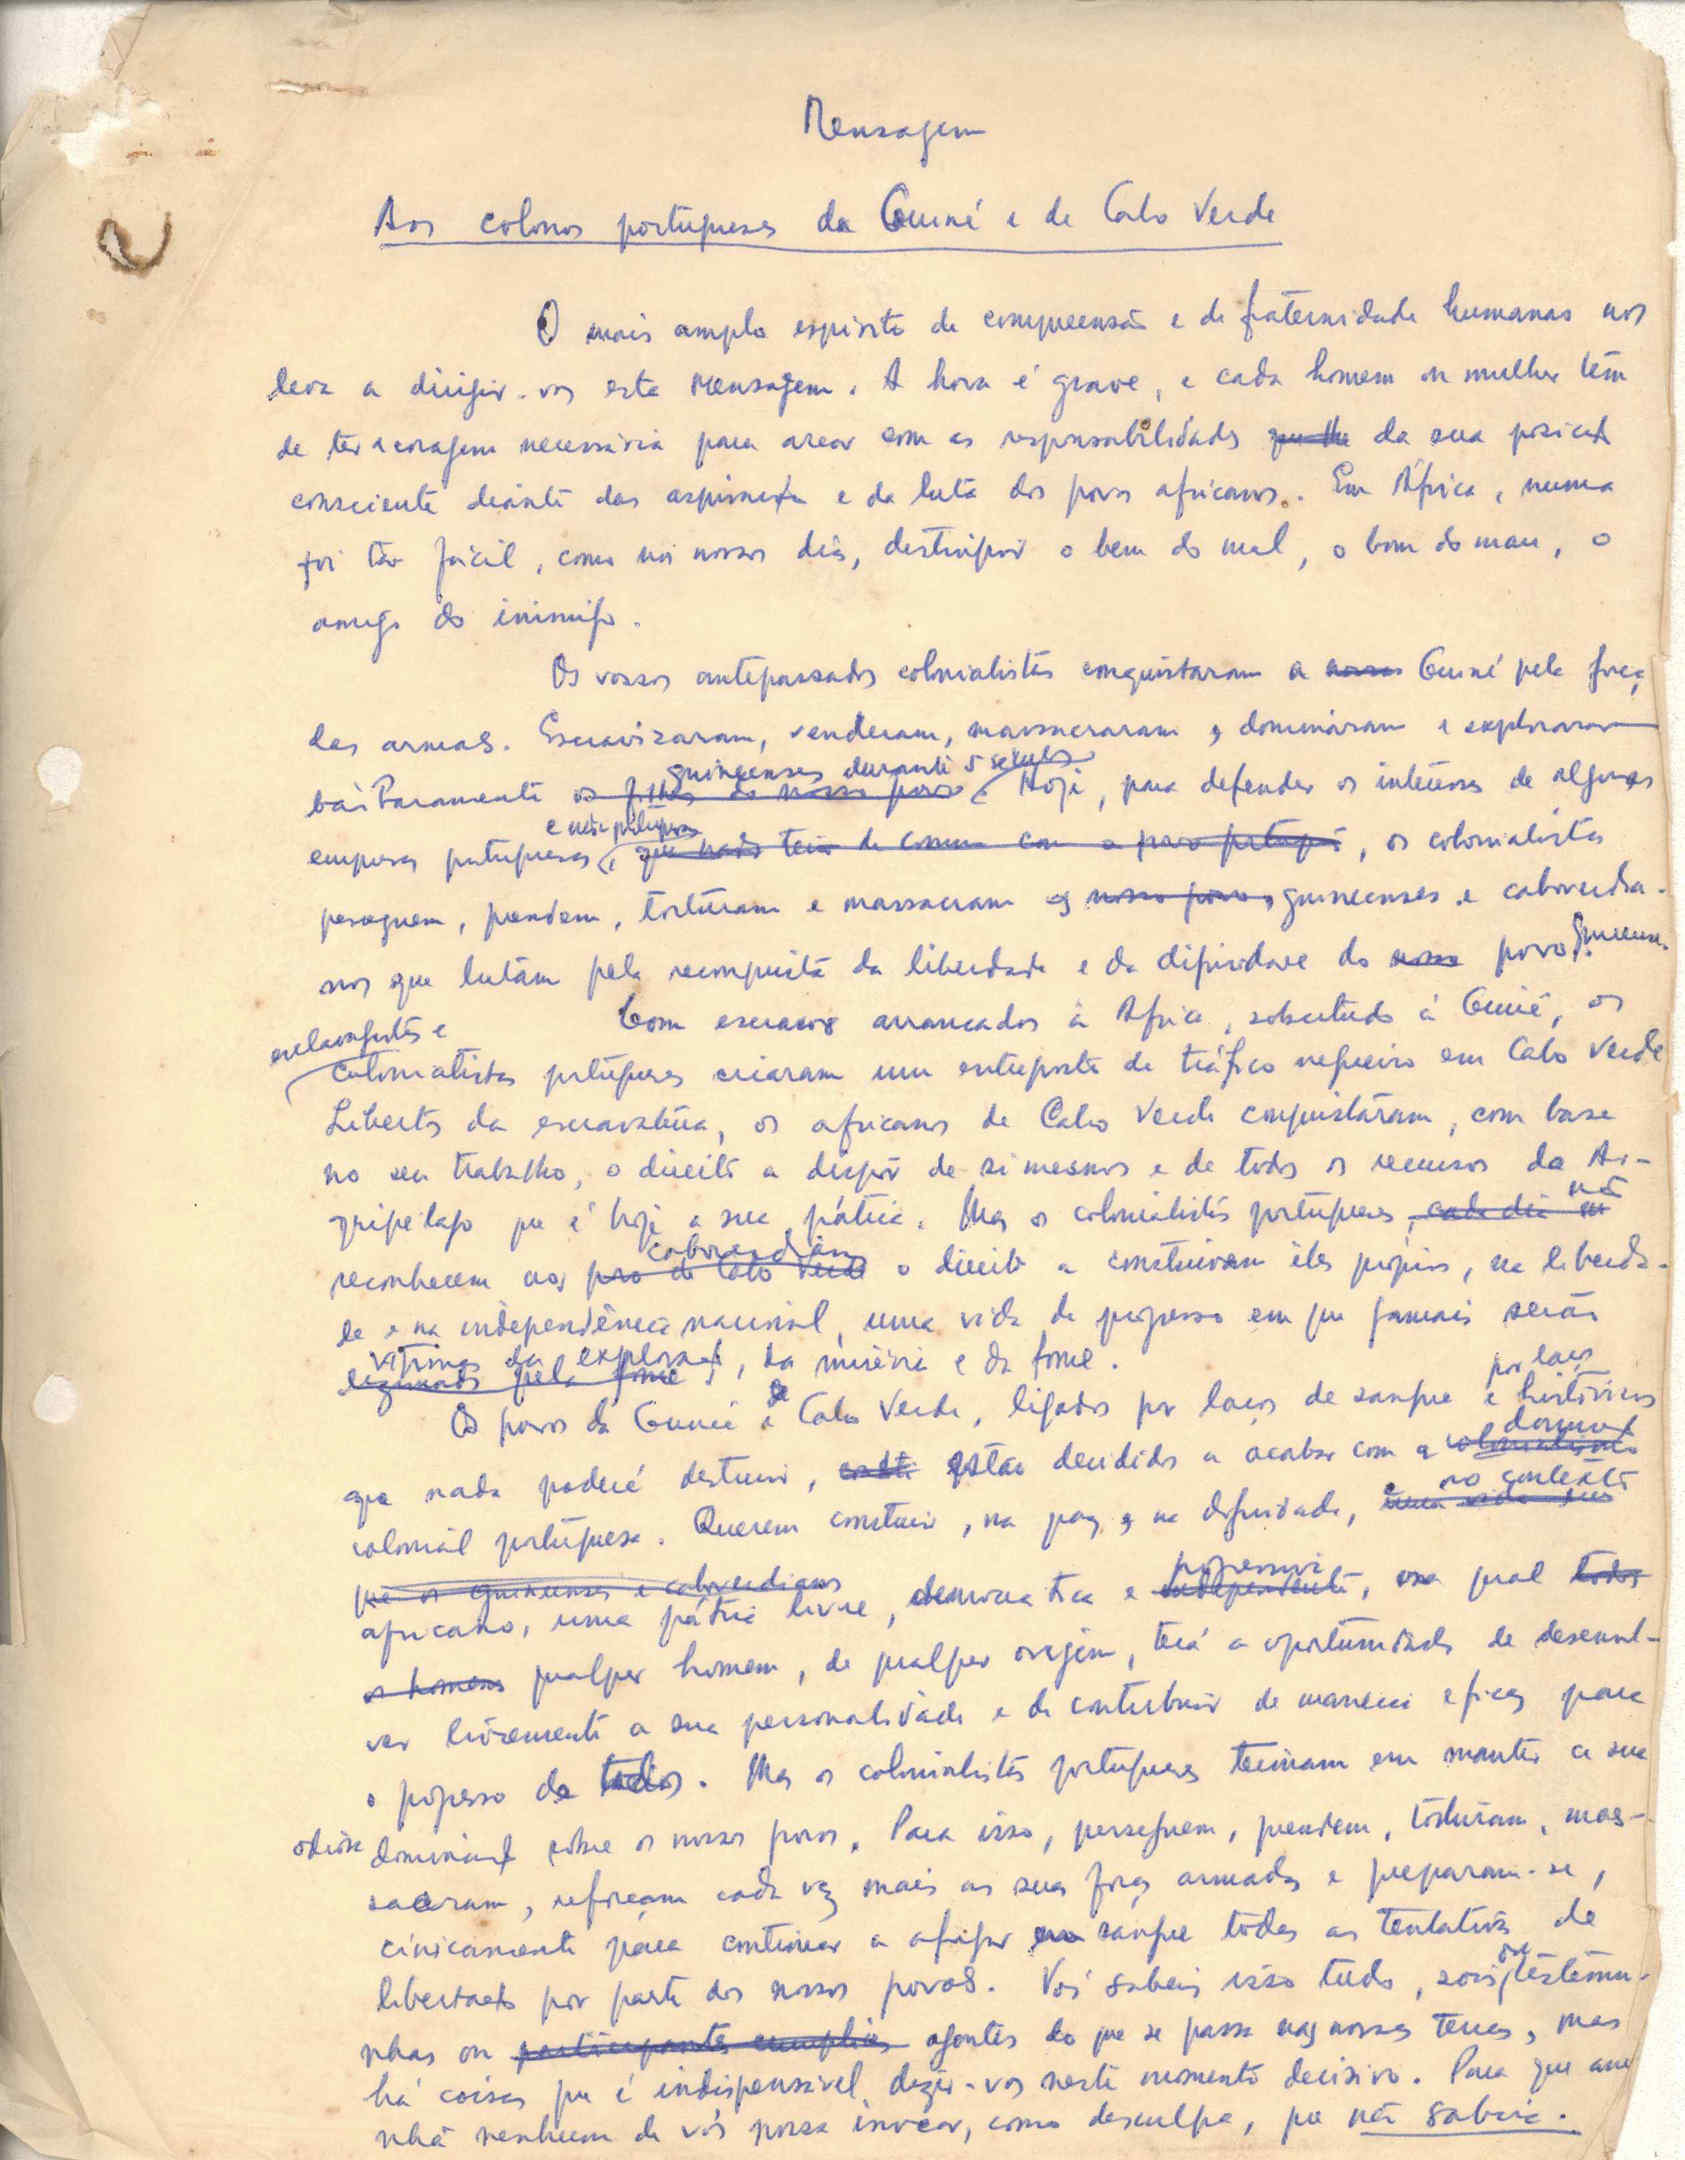 Mensagem
Aos colonos portugueses da Guiné e de Cabo Verde
O mais amplo espírito de compreensão e de fraternidade humanas nos
leva a dirigir-vos esta mensagem. A hora é grave, e cada homem ou mulher têm
de ter a coragem necessária para arcar com as responsabilidades que lhe da sua posição
consciente diante das aspirações e da luta dos povos africanos. Em África, nunca
foi tão fácil, como nos nossos dias, distinguir o bem do mal, o bom do mau, o
amigo do inimigo.
Os vossos antepassados colonialistas conquistaram a nossa Guiné pela força
das armas. Escravizaram, venderam, massacraram, dominaram e exploraram
guineenses durante 5 séculos
bàrbaramente os filhos do nosso povo. Hoje, para defender os interesses de algumas
e não portuguesas
empresas portuguesas, que nada teem de comum com o povo português, os colonialistas
perseguem, prendem, torturam e massacram os nossos povos guineenses e caboverdia-
nos que lutam pela reconquista da liberdade e da dignidade do nosso povo.
Com escravos arrancados à África, sobretudo à Guiné, os
esclavagistas e
colonialistas portugueses criaram um entreposto de tráfico negreiro em Cabo Verde
Libertos da escravatura, os africanos de Cabo Verde conquistaram, com base
no seu trabalho, o direito a dispôr de si mesmos e de todos os recursos do Ar-
quipélago que é hoje a sua pátria. Mas os colonialistas portugueses, cada dia
não
caboverdianos
reconhecem aos povo de Cabo Verde o direito a construirem êles próprios, na liberda-
de e na independência nacional, uma vida de progresso em que jamais serão
vítimas da exploração, da miséria e da fome.
dizimados pela fome
por laços
Os povos da Guiné e de Cabo Verde, ligados por laços de sangue e históricos
dominação
que nada poderá destruir, estão decididos a acabar com a colonialismo
no contexto
colonial portuguesa. Querem construir, na paz e na dignidade, uma vida
que os guineenses e caboverdianos
progressiva
africano, uma pátria livre, democrática e independente, na qual todos
os homens qualquer homem, de qualquer origem, terá a oportunidade de desenvol-
ver livremente a sua personalidade e de contribuir de maneira eficaz para
o progesso de todos. Mas os colonialistas portugueses teimam em manter a sua
odiosa dominação sôbre os nossos povos. Para isso, perseguem, prendem, torturam, mas-
sacram, reforçam cada vez mais as suas forças armadas e preparam-se,
cìnicamente para continuar a afogar em sangue todas as tentativas de
libertação por parte dos nossos povos. Vós sabeis isso tudo, sois testemu-
ou
nhas ou participantes cumplices agentes do que se passa nas nossas terras, mas
há coisas que é indispensável dizer-vos neste momento decisivo. Para que ama-
nhã nenhum de vós possa invocar, como desculpa, que não sabia.